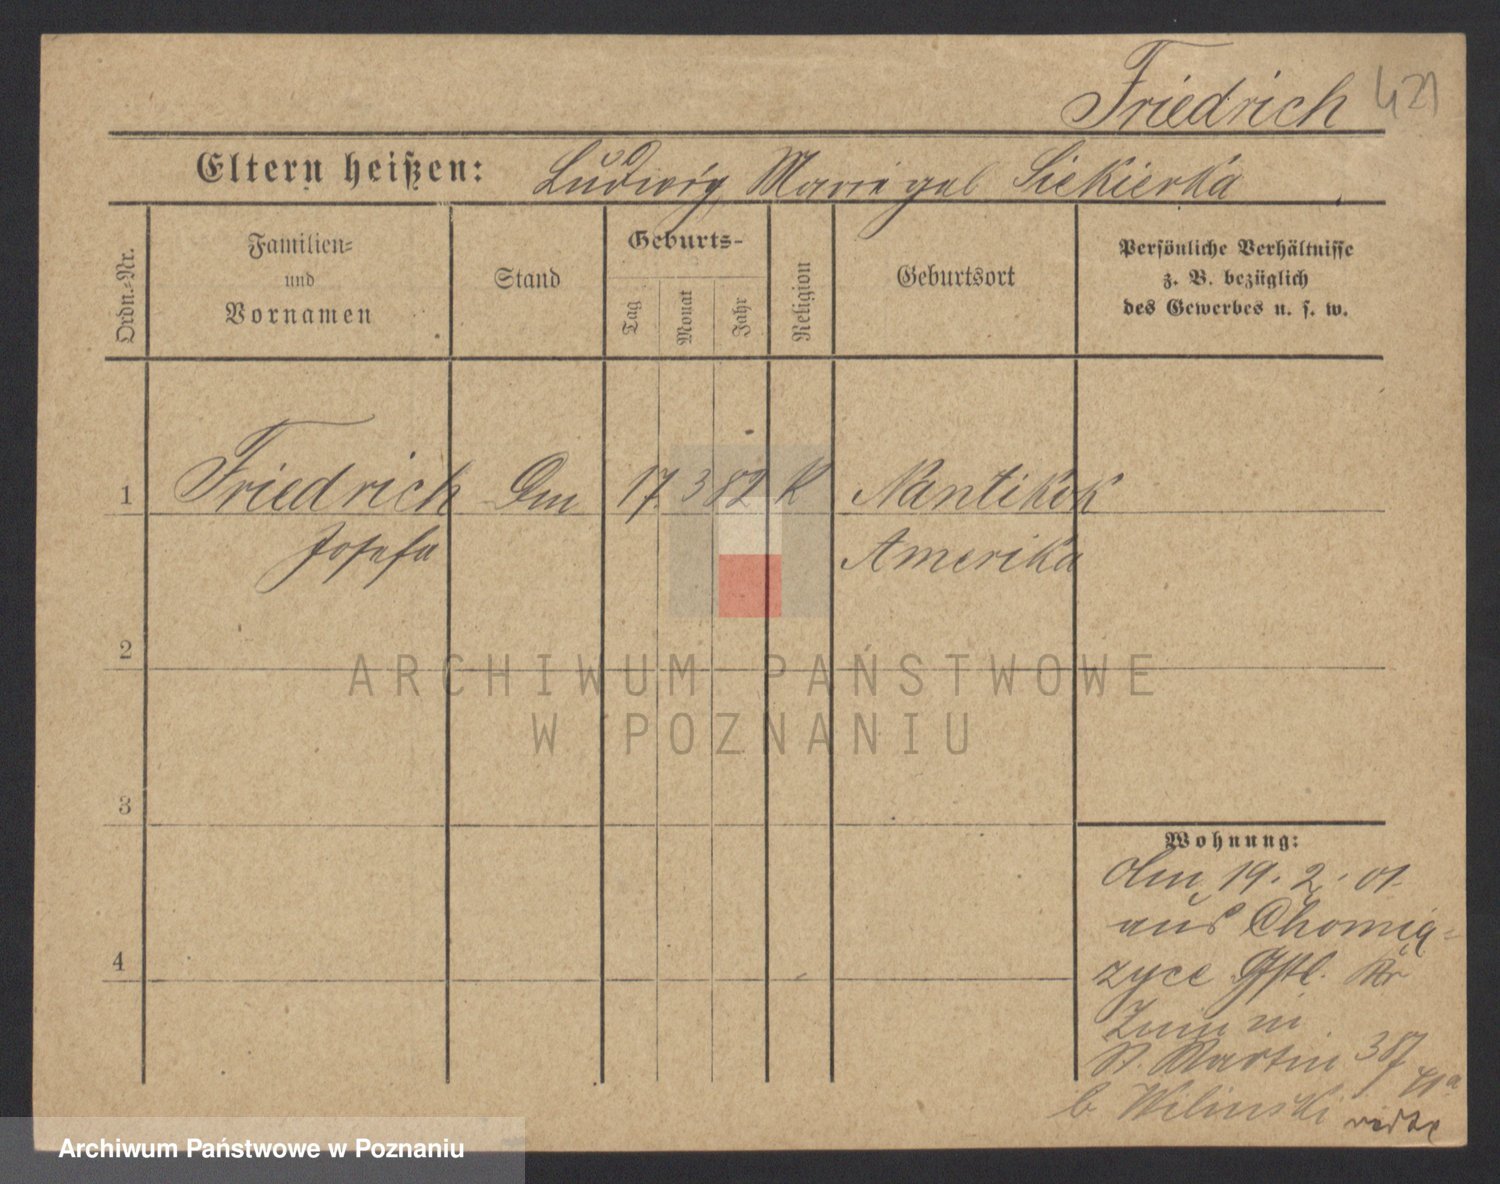 Friedrich 421
Eltern heißen: Ludwig Marie geb Siekierka
Ordn.=Nr.
Familien=
und
Vornamen
Stand
Geburts=
Tag
Monat
Jahr
Religion
Geburtsort
Persönliche Verhältnisse
z. B. bezüglich
des Gewerbes u. s. w.
1 Friedrich 17. 3 82 K Nantikok
Josefa Amerika
2
ARCHIWUM PAŃSTWOWE
W POZNANIU
3
Wohnung:
19. 2. 01
aus Chomią=
4
zyce Gstl. Kr
Znin in
St. Martin 38
b Wilinski
Archiwum Państwowe w Poznaniu